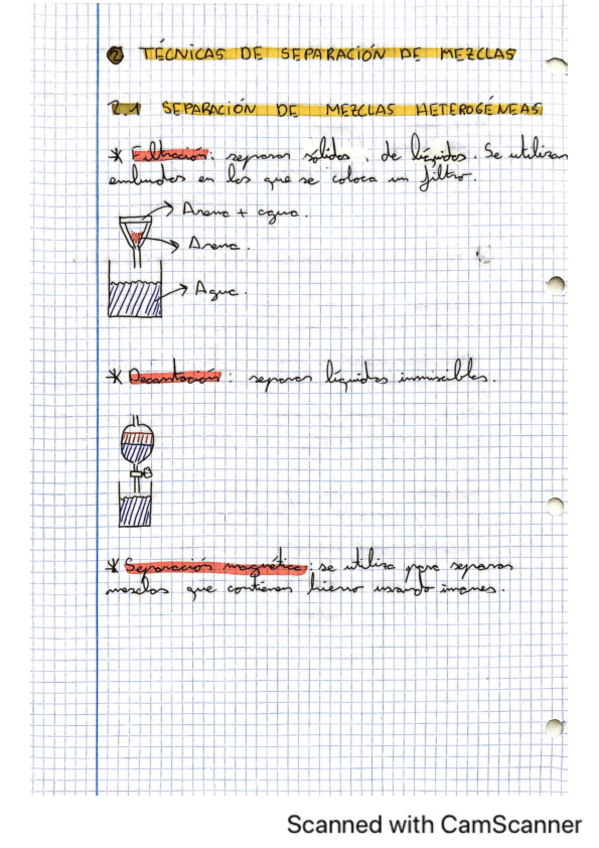 ② TÉCNICAS DE SEPARACIÓN DE MEZCLAS
2.1 SEPARACIÓN DE MEZCLAS HETEROGÉNEAS
* Filtración: separar sólidos . de líquidos. Se utilizan
embudos en los que se coloca un filtro.
Arena + agua.
Arena.
Agua.
* Decantación: separar líquidos inmiscibles.
* Separación magnética: se utiliza para separar
mezclas que contienen hierro usando imanes.
Scanned with CamScanner